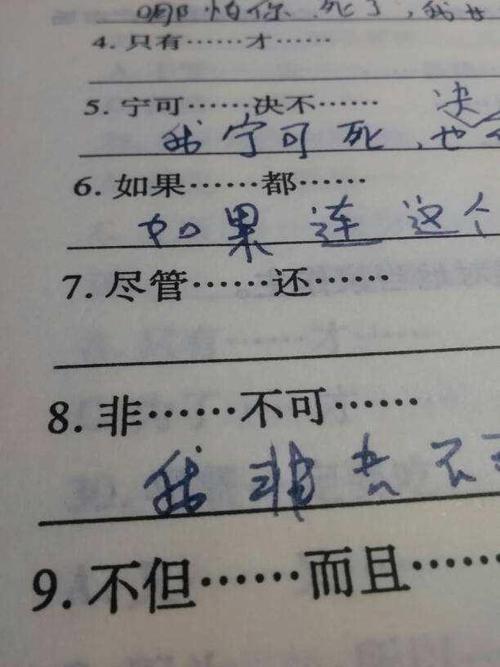 哪怕你死了,我也
4. 只有……才……
5. 宁可……决不…… 决
我宁可死,也
6. 如果……都……
如果连这个
7. 尽管……还……
8. 非……不可……
我非去不可
9. 不但……而且……